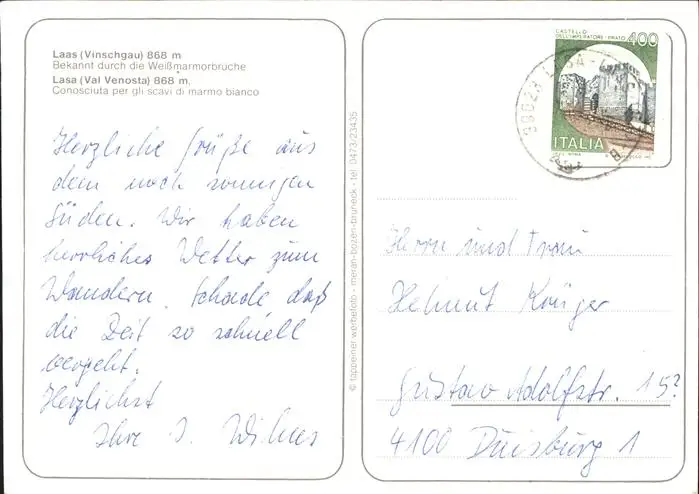 Laas (Vinschgau) 868 m
Bekannt durch die Weißmarmorbrüche
Lasa (Val Venosta) 868 m.
Conosciuta per gli scavi di marmo bianco
Herzliche Grüße aus
dem noch sonnigen
Süden. Wir haben
herrliches Wetter zum
Wandern. Schade daß
die Zeit so schnell
vergeht.
Herzlichst
Ihre J. Wilmes
© tappeiner werbefoto - meran-bozen-bruneck - tel. 0473/23435
CASTELLO
DELL'IMPERATORE - PRATO
400
ITALIA
39023 LASA
Herrn und Frau
Helmut Krüger
Gustav Adolfstr. 15?
4100 Duisburg 1